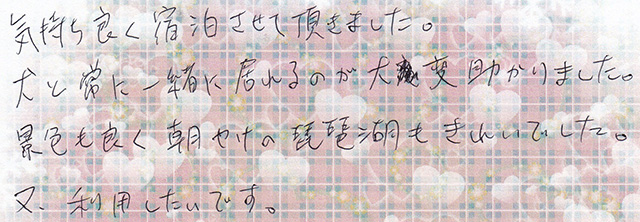 気持ち良く宿泊させて頂きました。
犬と常に一緒に居れるのが大変助かりました。
景色も良く朝やけの琵琶湖もきれいでした。
又、利用したいです。